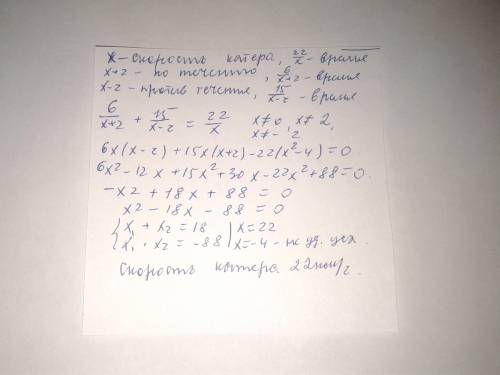 x – скорость катера, 22/x – время
x+2 – по течению, 6/x+2 – время
x-2 – против течения, 15/x-2 – время
6/x+2 + 15/x-2 = 22/x   x≠0, x≠2, x≠-2
6x(x-2)+15x(x+2)-22(x²-4)=0
6x²-12x+15x²+30x-22x²+88=0.
-x2+18x+88=0
x2-18x-88=0
{x₁+x₂=18 | x=22
{x₁·x₂=-88 | x=-4 - не уд. усл.
Скорость катера 22км/г.